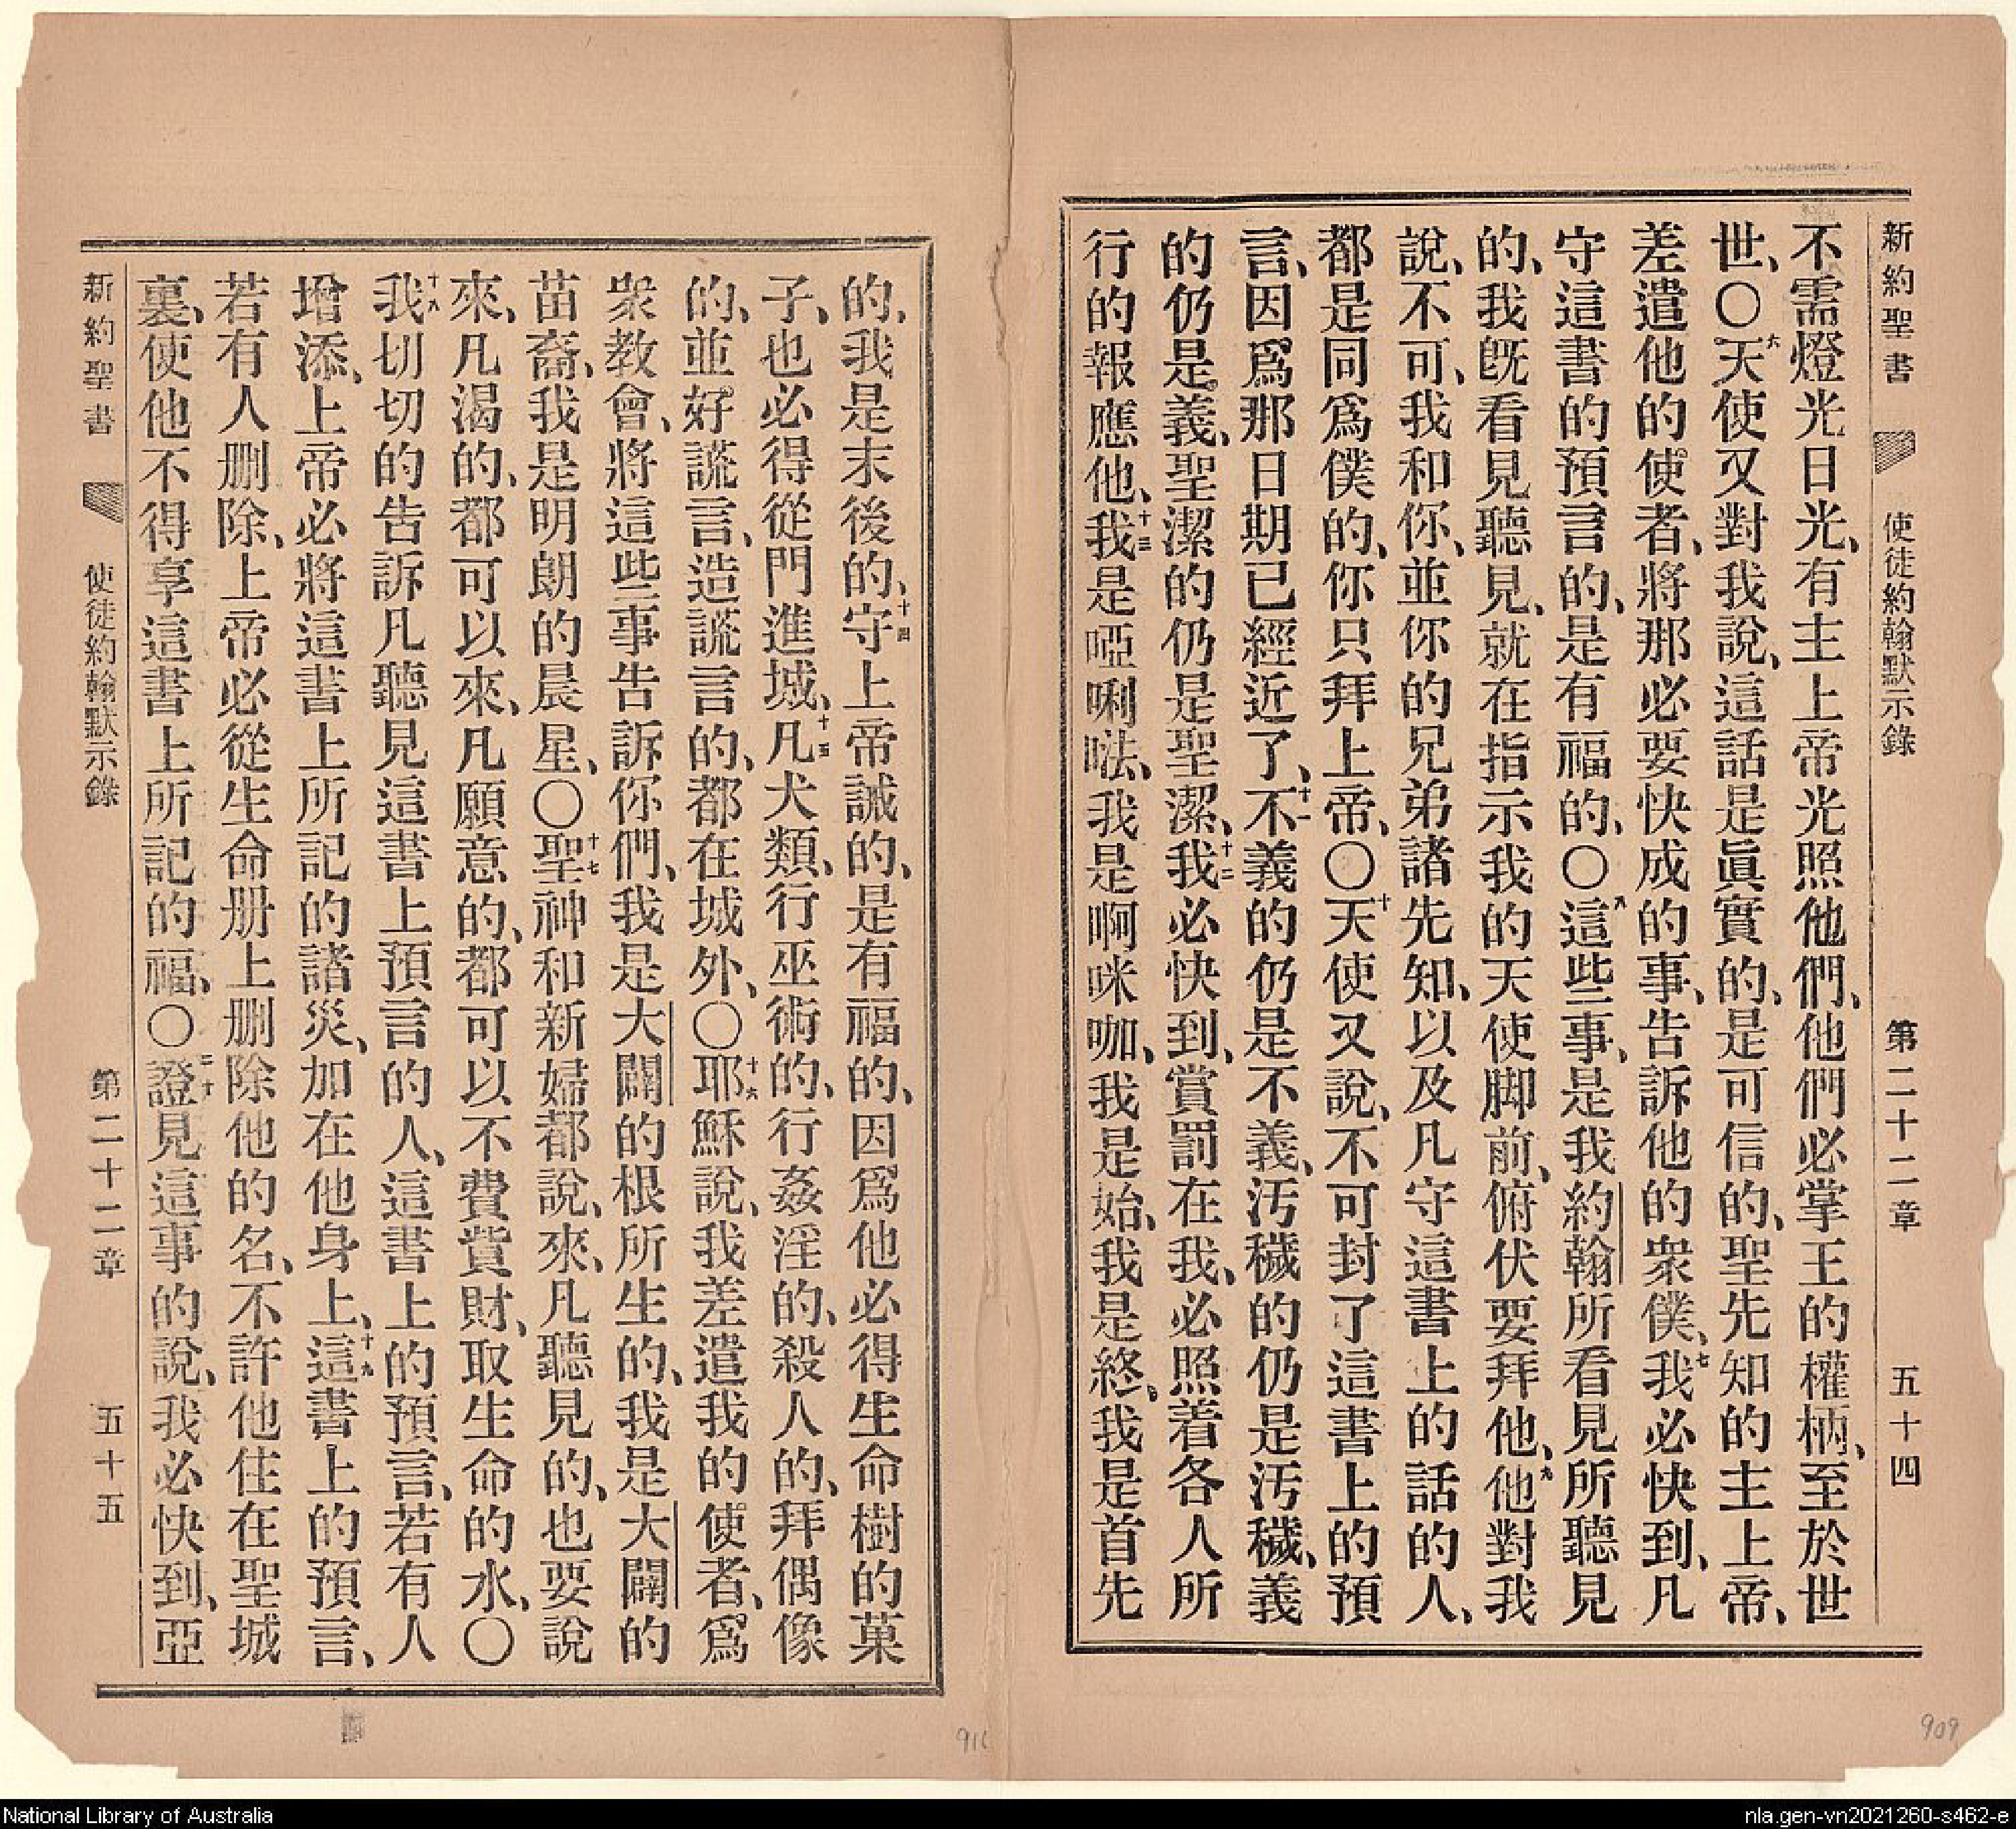 新約聖書 使徒約翰默示錄 第二十二章 五十四
不需燈光日光、有主上帝光照他們、他們必掌王的權柄、至於世
世、〇六天使又對我說、這話是眞實的、是可信的、聖先知的主上帝、
差遣他的使者、將那必要快成的事、告訴他的衆僕、七我必快到、凡
守這書的預言的、是有福的、〇八這些事、是我約翰所看見所聽見
的、我旣看見聽見、就在指示我的天使脚前、俯伏要拜他、九他對我
說、不可、我和你、並你的兄弟諸先知、以及凡守這書上的話的人、
都是同爲僕的、你只拜上帝、〇十天使又說、不可封了這書上的預
言、因爲那日期已經近了、十一不義的仍是不義、汚穢的仍是汚穢、義
的仍是義、聖潔的仍是聖潔、十二我必快到、賞罰在我、必照着各人所
行的報應他、十三我是啞唎㗣、我是啊咪咖、我是始、我是終、我是首先
的、我是末後的、十四守上帝誡的、是有福的、因爲他必得生命樹的菓
子、也必得從門進城、十五凡犬類、行巫術的、行姦淫的、殺人的、拜偶像
的、並好謊言、造謊言的、都在城外、〇十六耶穌說、我差遣我的使者、爲
衆教會、將這些事告訴你們、我是大闢的根所生的、我是大闢的
苗裔、我是明朗的晨星、〇十七聖神和新婦都說、來、凡聽見的、也要說
來、凡渴的、都可以來、凡願意的、都可以不費貲財、取生命的水、〇
十八我切切的告訴凡聽見這書上預言的人、這書上的預言、若有人
增添、上帝必將這書上所記的諸災、加在他身上、十九這書上的預言、
若有人删除、上帝必從生命册上删除他的名、不許他住在聖城
裏、使他不得享這書上所記的福、〇二十證見這事的說、我必快到、亞
新約聖書 使徒約翰默示錄 第二十二章 五十五
909
National Library of Australia
nla.gen-vn2021260-s462-e